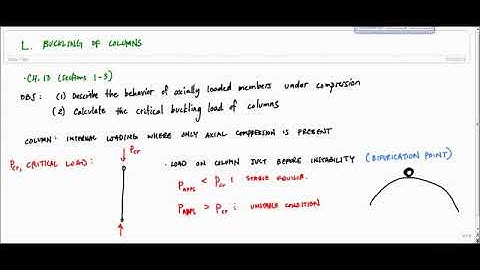 L. BUCKLING OF COLUMNS
· CH. 13 (sections 1-3)
OBS: (1) Describe the behavior of axially loaded members under compression
(2) Calculate the critical buckling load of columns
COLUMN: INTERNAL LOADING WHERE ONLY AXIAL COMPRESSION IS PRESENT
Pcr, CRITICAL LOAD:
Pcr
· LOAD ON COLUMN JUST BEFORE INSTABILITY (BIFURICATION POINT)
PAPPL < Pcr : STABLE EQUILIB.
PAPPL > Pcr : UNSTABLE CONDITION